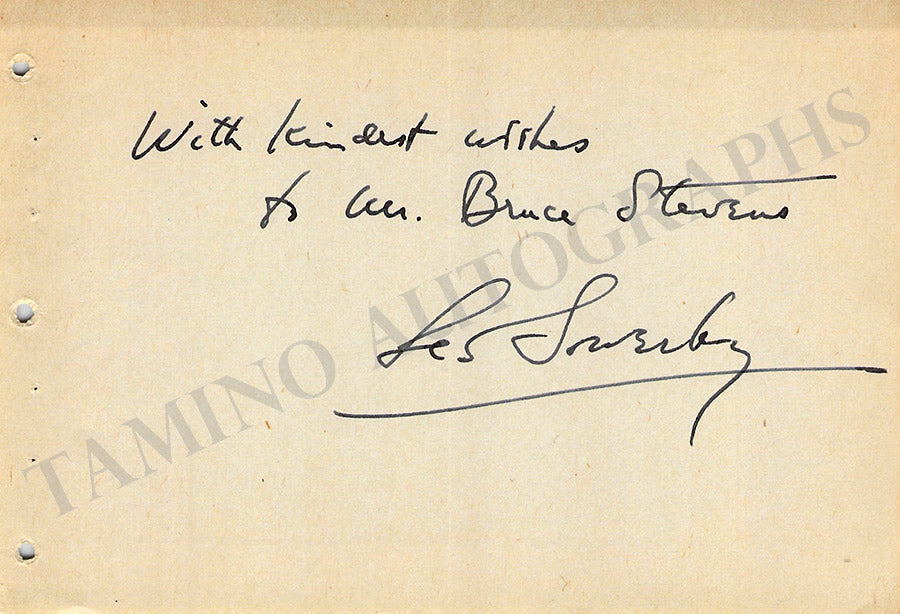 With Kindest wishes
to Mr. Bruce Stevens
Leo Sowerby
TAMINO AUTOGRAPHS